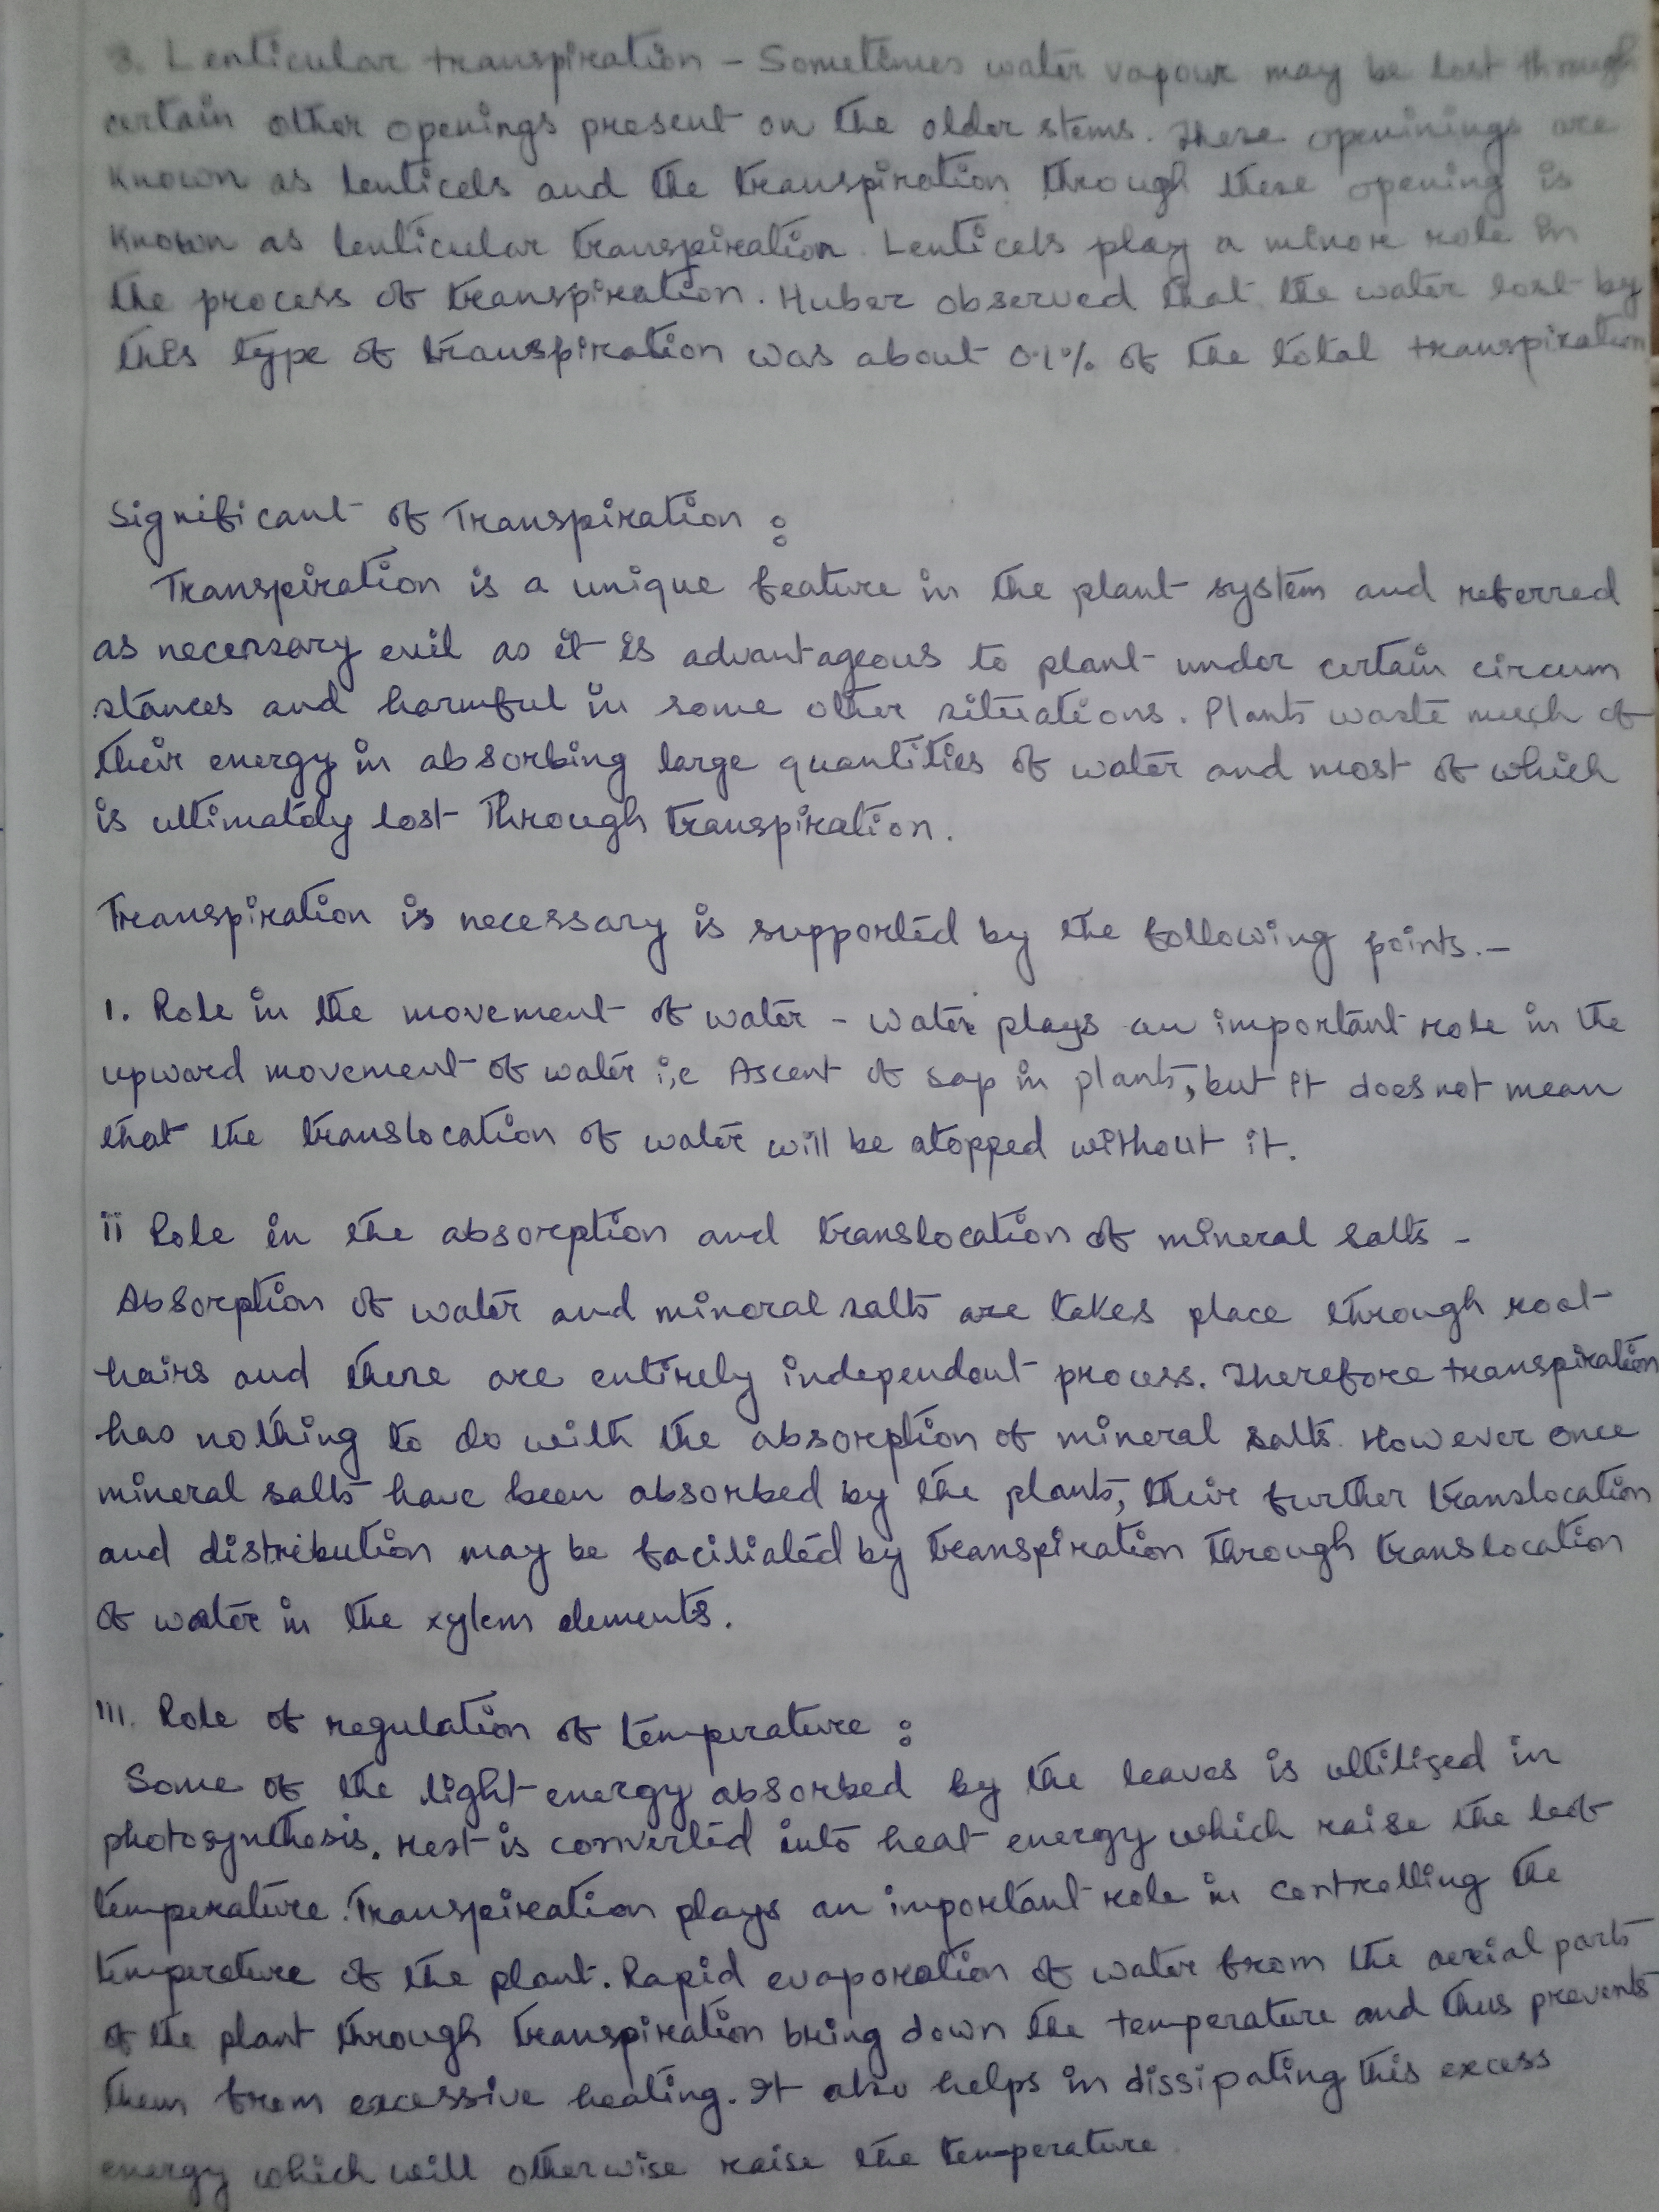 3. Lenticular transpiration - Sometimes water vapour may be lost through
certain other openings present on the older stems. These openinings are
known as lenticels and the transpiration through these opening is
known as lenticular transpiration. Lenticels play a minor role in
the process of transpiration. Huber observed that the water lost by
this type of transpiration was about 0.1% of the total transpiration

Significant of Transpiration :
Transpiration is a unique feature in the plant system and referred
as necessary evil as it is advantageous to plant under certain circum
stances and harmful in some other situations. Plants waste much of
their energy in absorbing large quantities of water and most of which
is ultimately lost through transpiration.

Transpiration is necessary is supported by the following points. -
1. Role in the movement of water - water plays an important role in the
upward movement of water i,e Ascent of sap in plants, but it does not mean
that the translocation of water will be stopped without it.

ii Role in the absorption and translocation of mineral salts -
Absorption of water and mineral salts are takes place through root
hairs and these are entirely independent process. Therefore transpiration
has nothing to do with the absorption of mineral salts. However once
mineral salts have been absorbed by the plants, their further translocation
and distribution may be faciliated by transpiration through translocation
of water in the xylem elements.

iii. Role of regulation of temperature :
Some of the light energy absorbed by the leaves is ultilized in
photosynthesis. rest is converted into heat energy which raise the leaf
temperature. Transpiration plays an important role in controlling the
temperature of the plant. Rapid evaporation of water from the aerial parts
of the plant through transpiration bring down the temperature and thus prevents
them from excessive heating. It also helps in dissipating this excess
energy which will otherwise raise the temperature.